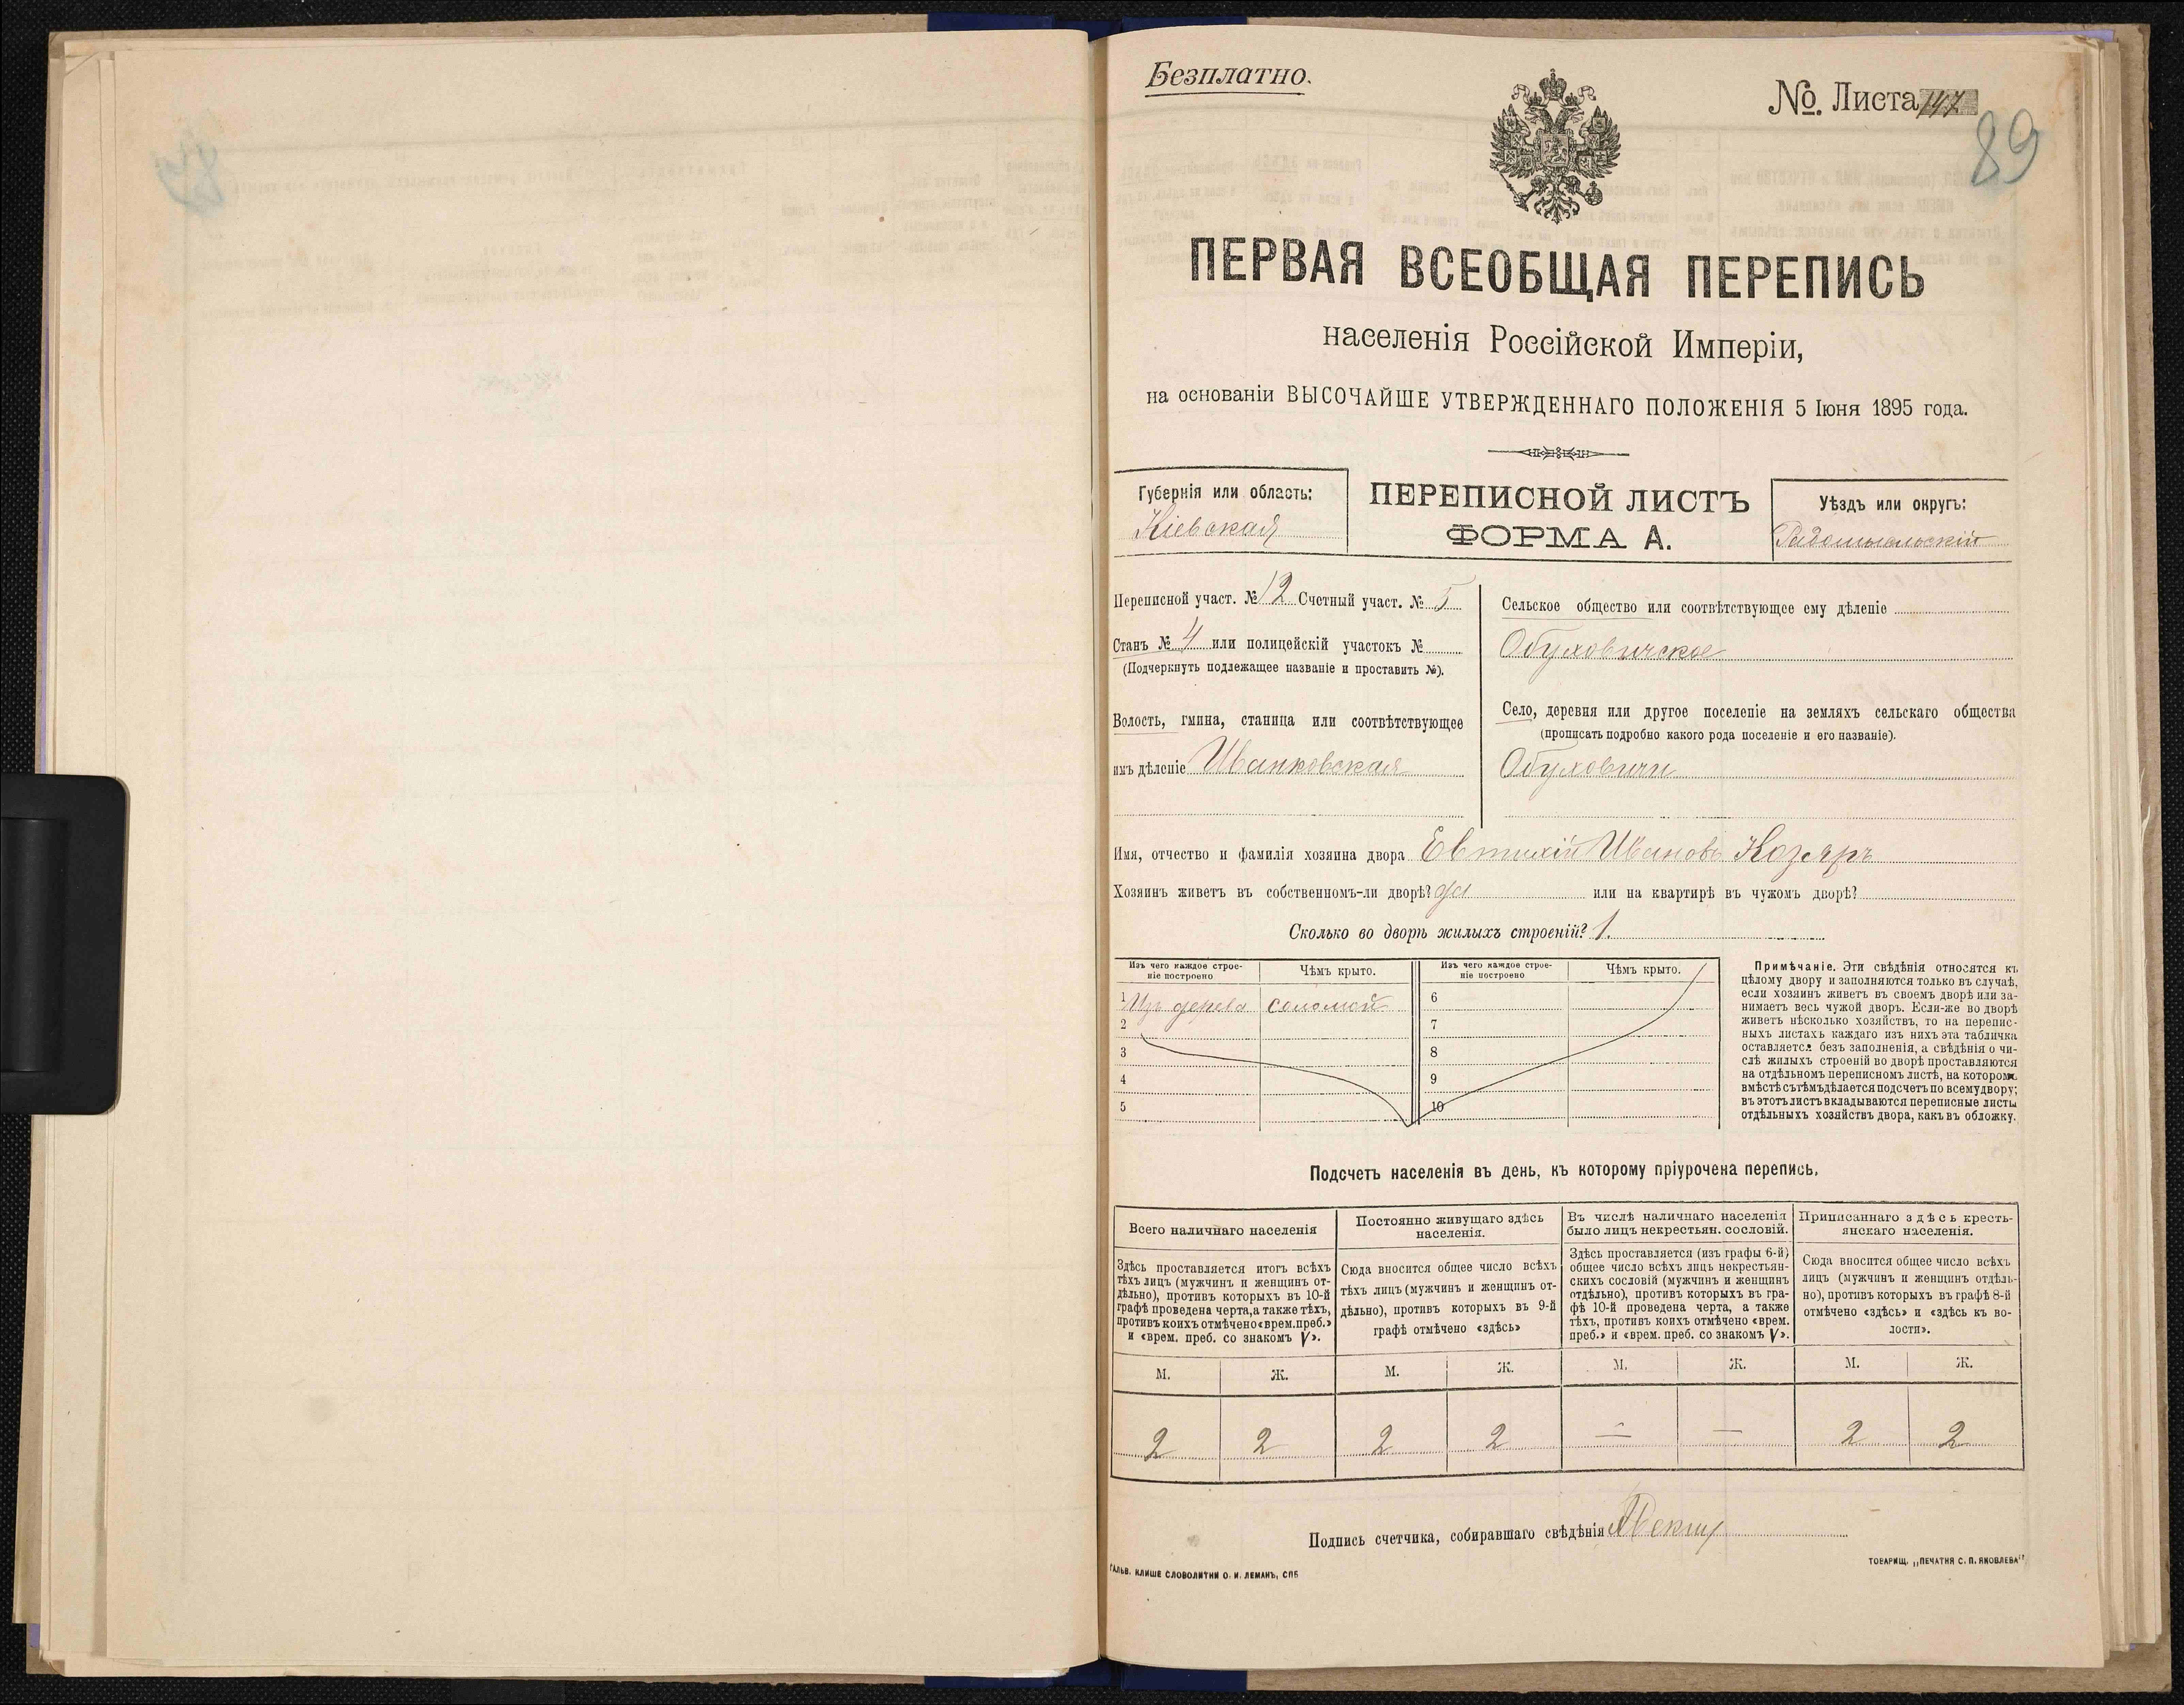 Безплатно.
№. Листа 147
89
ПЕРВАЯ ВСЕОБЩАЯ ПЕРЕПИСЬ
населенія Россійской Имперіи,
на основаніи ВЫСОЧАЙШЕ УТВЕРЖДЕННАГО ПОЛОЖЕНІЯ 5 Іюня 1895 года.
Губернія или область:
Кіевская
ПЕРЕПИСНОЙ ЛИСТЪ
ФОРМА А.
Уѣздъ или округъ:
Радомысльскій
Переписной участ. № 12 Счетный участ. № 5
Станъ № 4 или полицейскій участокъ №
(Подчеркнуть подлежащее названіе и проставить №).
Волость, гмина, станица или соотвѣтствующее
имъ дѣленіе Иванковская
Сельское общество или соотвѣтствующее ему дѣленіе
Обуховичское
Село, деревня или другое поселеніе на земляхъ сельскаго общества
(прописать подробно какого рода поселеніе и его названіе).
Обуховичи
Имя, отчество и фамилія хозяина двора Евтихій Ивановъ Козяръ
Хозяинъ живетъ въ собственномъ-ли дворѣ? да или на квартирѣ въ чужомъ дворѣ?
Сколько во дворѣ жилыхъ строеній? 1.
Изъ чего каждое строе-
ніе построено
Чѣмъ крыто.
Изъ чего каждое строе-
ніе построено
Чѣмъ крыто.
1 Изъ дерева соломой
2
3
4
5
6
7
8
9
10
Примѣчаніе. Эти свѣдѣнія относятся къ
цѣлому двору и заполняются только въ случаѣ,
если хозяинъ живетъ въ своемъ дворѣ или за-
нимаетъ весь чужой дворъ. Если-же во дворѣ
живетъ нѣсколько хозяйствъ, то на перепис-
ныхъ листахъ каждаго изъ нихъ эта табличка
оставляется безъ заполненія, а свѣдѣнія о чи-
слѣ жилыхъ строеній во дворѣ проставляются
на отдѣльномъ переписномъ листѣ, на которомъ
вмѣстѣ съ тѣмъ дѣлается подсчетъ по всему двору;
въ этотъ листъ вкладываются переписные листы
отдѣльныхъ хозяйствъ двора, какъ въ обложку.
Подсчетъ населенія въ день, къ которому пріурочена перепись.
Всего наличнаго населенія
Здѣсь проставляется итогъ всѣхъ
тѣхъ лицъ (мужчинъ и женщинъ от-
дѣльно), противъ которыхъ въ 10-й
графѣ проведена черта, а также тѣхъ,
противъ коихъ отмѣчено «врем. преб.»
и «врем. преб. со знакомъ V».
Постоянно живущаго здѣсь
населенія.
Сюда вносится общее число всѣхъ
тѣхъ лицъ (мужчинъ и женщинъ от-
дѣльно), противъ которыхъ въ 9-й
графѣ отмѣчено «здѣсь»
Въ числѣ наличнаго населенія
было лицъ некрестьян. сословій.
Здѣсь проставляется (изъ графы 6-й)
общее число всѣхъ лицъ некрестьян-
скихъ сословій (мужчинъ и женщинъ
отдѣльно), противъ которыхъ въ гра-
фѣ 10-й проведена черта, а также
тѣхъ, противъ коихъ отмѣчено «врем.
преб.» и «врем. преб. со знакомъ V».
Приписаннаго здѣсь кресть-
янскаго населенія.
Сюда вносится общее число всѣхъ
лицъ (мужчинъ и женщинъ отдѣль-
но), противъ которыхъ въ графѣ 8-й
отмѣчено «здѣсь» и «здѣсь къ во-
лости».
М. Ж. М. Ж. М. Ж. М. Ж.
2 2 2 2 — — 2 2
Подпись счетчика, собиравшаго свѣдѣнія
ГАЛЬВ. КЛИШЕ СЛОВОЛИТНИ О. И. ЛЕМАНЪ, СПБ
ТОВАРИЩ. „ПЕЧАТНЯ С. П. ЯКОВЛЕВА"